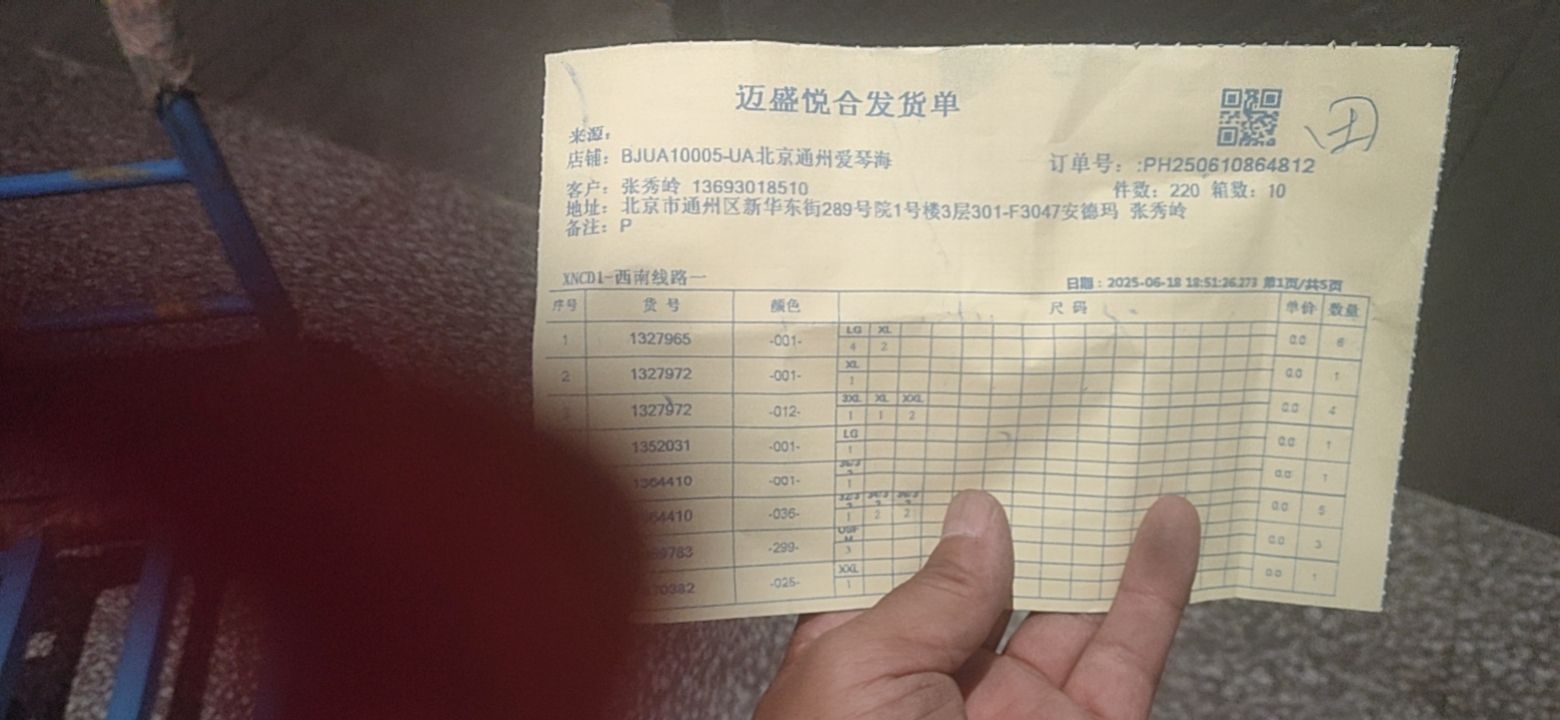 迈盛悦合发货单
来源:
店铺: BJUA10005-UA北京通州爱琴海
订单号: :PH250610864812
客户: 张秀岭 13693018510
件数: 220 箱数: 10
地址: 北京市通州区新华东街289号院1号楼3层301-F3047安德玛 张秀岭
备注: P
XNCD1-西南线路一
日期: 2025-06-18 18:51:26.273 第1页/共5页
序号 货号 颜色 尺码 单价 数量
LG XL
1 1327965 -001- 4 2 0.0 6
XL
2 1327972 -001- 1 0.0 1
3XL XL XXL
3 1327972 -012- 1 1 2 0.0 4
LG
1352031 -001- 1 0.0 1
1364410 -001- 1 0.0 1
64410 -036- 1 2 2 0.0 5
9783 -299- 3 0.0 3
XXL
70382 -025- 1 0.0 1